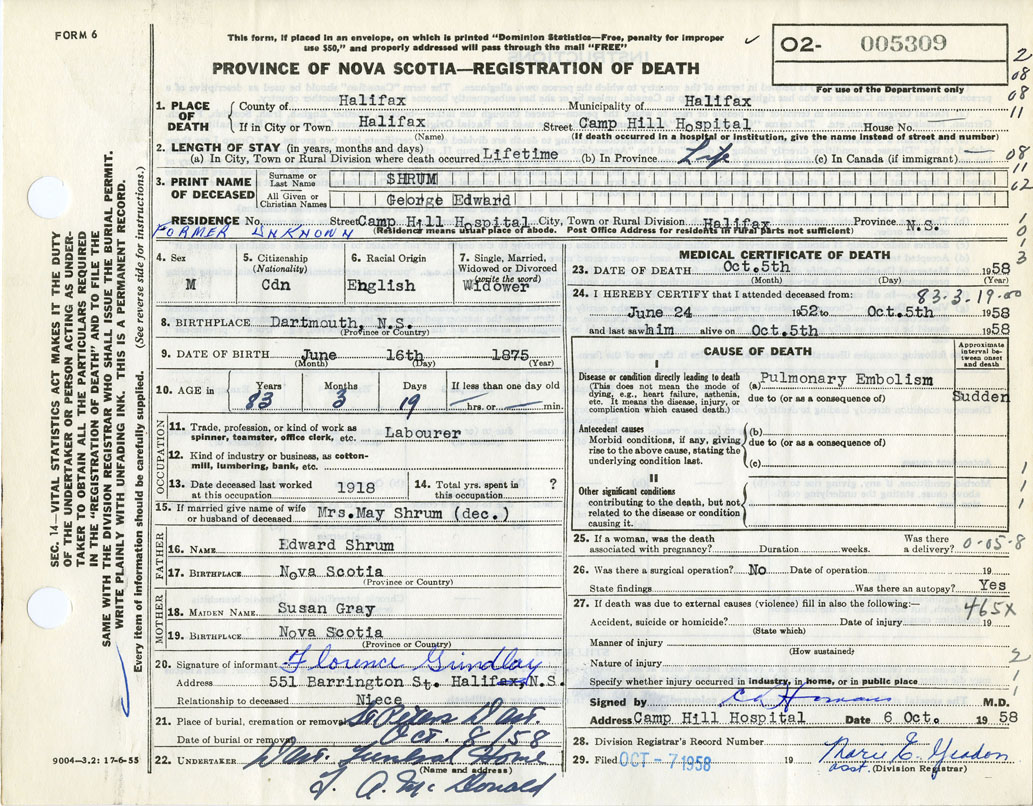 FORM 6
This form, if placed in an envelope, on which is printed "Dominion Statistics—Free, penalty for improper
use $50," and properly addressed will pass through the mail "FREE"
02- 005309
For use of the Department only
PROVINCE OF NOVA SCOTIA—REGISTRATION OF DEATH
1. PLACE OF DEATH
County of Halifax Municipality of Halifax
If in City or Town Halifax Street Camp Hill Hospital House No.
(Name) (If death occurred in a hospital or institution, give the name instead of street and number)
2. LENGTH OF STAY (in years, months and days)
(a) In City, Town or Rural Division where death occurred Lifetime (b) In Province Life (c) In Canada (if immigrant) —
3. PRINT NAME OF DECEASED
Surname or Last Name SHRUM
All Given or Christian Names George Edward
RESIDENCE No. Street Camp Hill Hospital City, Town or Rural Division Halifax Province N.S.
FORMER UNKNOWN (Residence means usual place of abode. Post Office Address for residents in rural parts not sufficient)
4. Sex M
5. Citizenship (Nationality) Cdn
6. Racial Origin English
7. Single, Married, Widowed or Divorced (write the word) Widower
8. BIRTHPLACE Dartmouth, N.S.
(Province or Country)
9. DATE OF BIRTH June 16th 1875
(Month) (Day) (Year)
10. AGE in Years 83 Months 3 Days 19 If less than one day old — hrs. or — min.
OCCUPATION
11. Trade, profession, or kind of work as spinner, teamster, office clerk, etc. Labourer
12. Kind of industry or business, as cotton-mill, lumbering, bank, etc.
13. Date deceased last worked at this occupation 1918
14. Total yrs. spent in this occupation ?
15. If married give name of wife or husband of deceased Mrs.May Shrum (dec.)
FATHER
16. NAME Edward Shrum
17. BIRTHPLACE Nova Scotia
(Province or Country)
MOTHER
18. MAIDEN NAME Susan Gray
19. BIRTHPLACE Nova Scotia
(Province or Country)
20. Signature of informant Florence Grindlay
Address 551 Barrington St. Halifax,N.S.
Relationship to deceased Niece
21. Place of burial, cremation or removal St Peters Dart.
Date of burial or removal Oct. 8/58
22. UNDERTAKER Dart. Funeral Home
(Name and address)
A. McDonald
9004—3.2: 17-6-55
MEDICAL CERTIFICATE OF DEATH
23. DATE OF DEATH Oct.5th 1958
(Month) (Day) (Year)
83-3-19-00
24. I HEREBY CERTIFY that I attended deceased from:
June 24 1952 to Oct.5th 1958
and last saw him alive on Oct.5th 1958
CAUSE OF DEATH
Approximate interval between onset and death
I
Disease or condition directly leading to death
(This does not mean the mode of dying, e.g., heart failure, asthenia, etc. It means the disease, injury, or complication which caused death.)
(a) Pulmonary Embolism Sudden
due to (or as a consequence of)
Antecedent causes
Morbid conditions, if any, giving rise to the above cause, stating the underlying condition last.
(b)
due to (or as a consequence of)
(c)
II
Other significant conditions
contributing to the death, but not related to the disease or condition causing it.
25. If a woman, was the death associated with pregnancy? Duration weeks. Was there a delivery? 0-05-8
26. Was there a surgical operation? No Date of operation 19
State findings Was there an autopsy? Yes
27. If death was due to external causes (violence) fill in also the following:— 465X
Accident, suicide or homicide? Date of injury 19
(State which)
Manner of injury
(How sustained)
Nature of injury
Specify whether injury occurred in industry, in home, or in public place
Signed by M.D.
Address Camp Hill Hospital Date 6 Oct. 1958
28. Division Registrar's Record Number
29. Filed OCT - 7 1958
asst. (Division Registrar)
2
08
08
11
08
11
02
1
0
1
3
1
1
1
2
1
1
SEC. 14—VITAL STATISTICS ACT MAKES IT THE DUTY
OF THE UNDERTAKER OR PERSON ACTING AS UNDER-
TAKER TO OBTAIN ALL THE PARTICULARS REQUIRED
IN THE "REGISTRATION OF DEATH" AND TO FILE THE
SAME WITH THE DIVISION REGISTRAR WHO SHALL ISSUE THE BURIAL PERMIT.
WRITE PLAINLY WITH UNFADING INK. THIS IS A PERMANENT RECORD.
Every item of information should be carefully supplied. (See reverse side for instructions.)